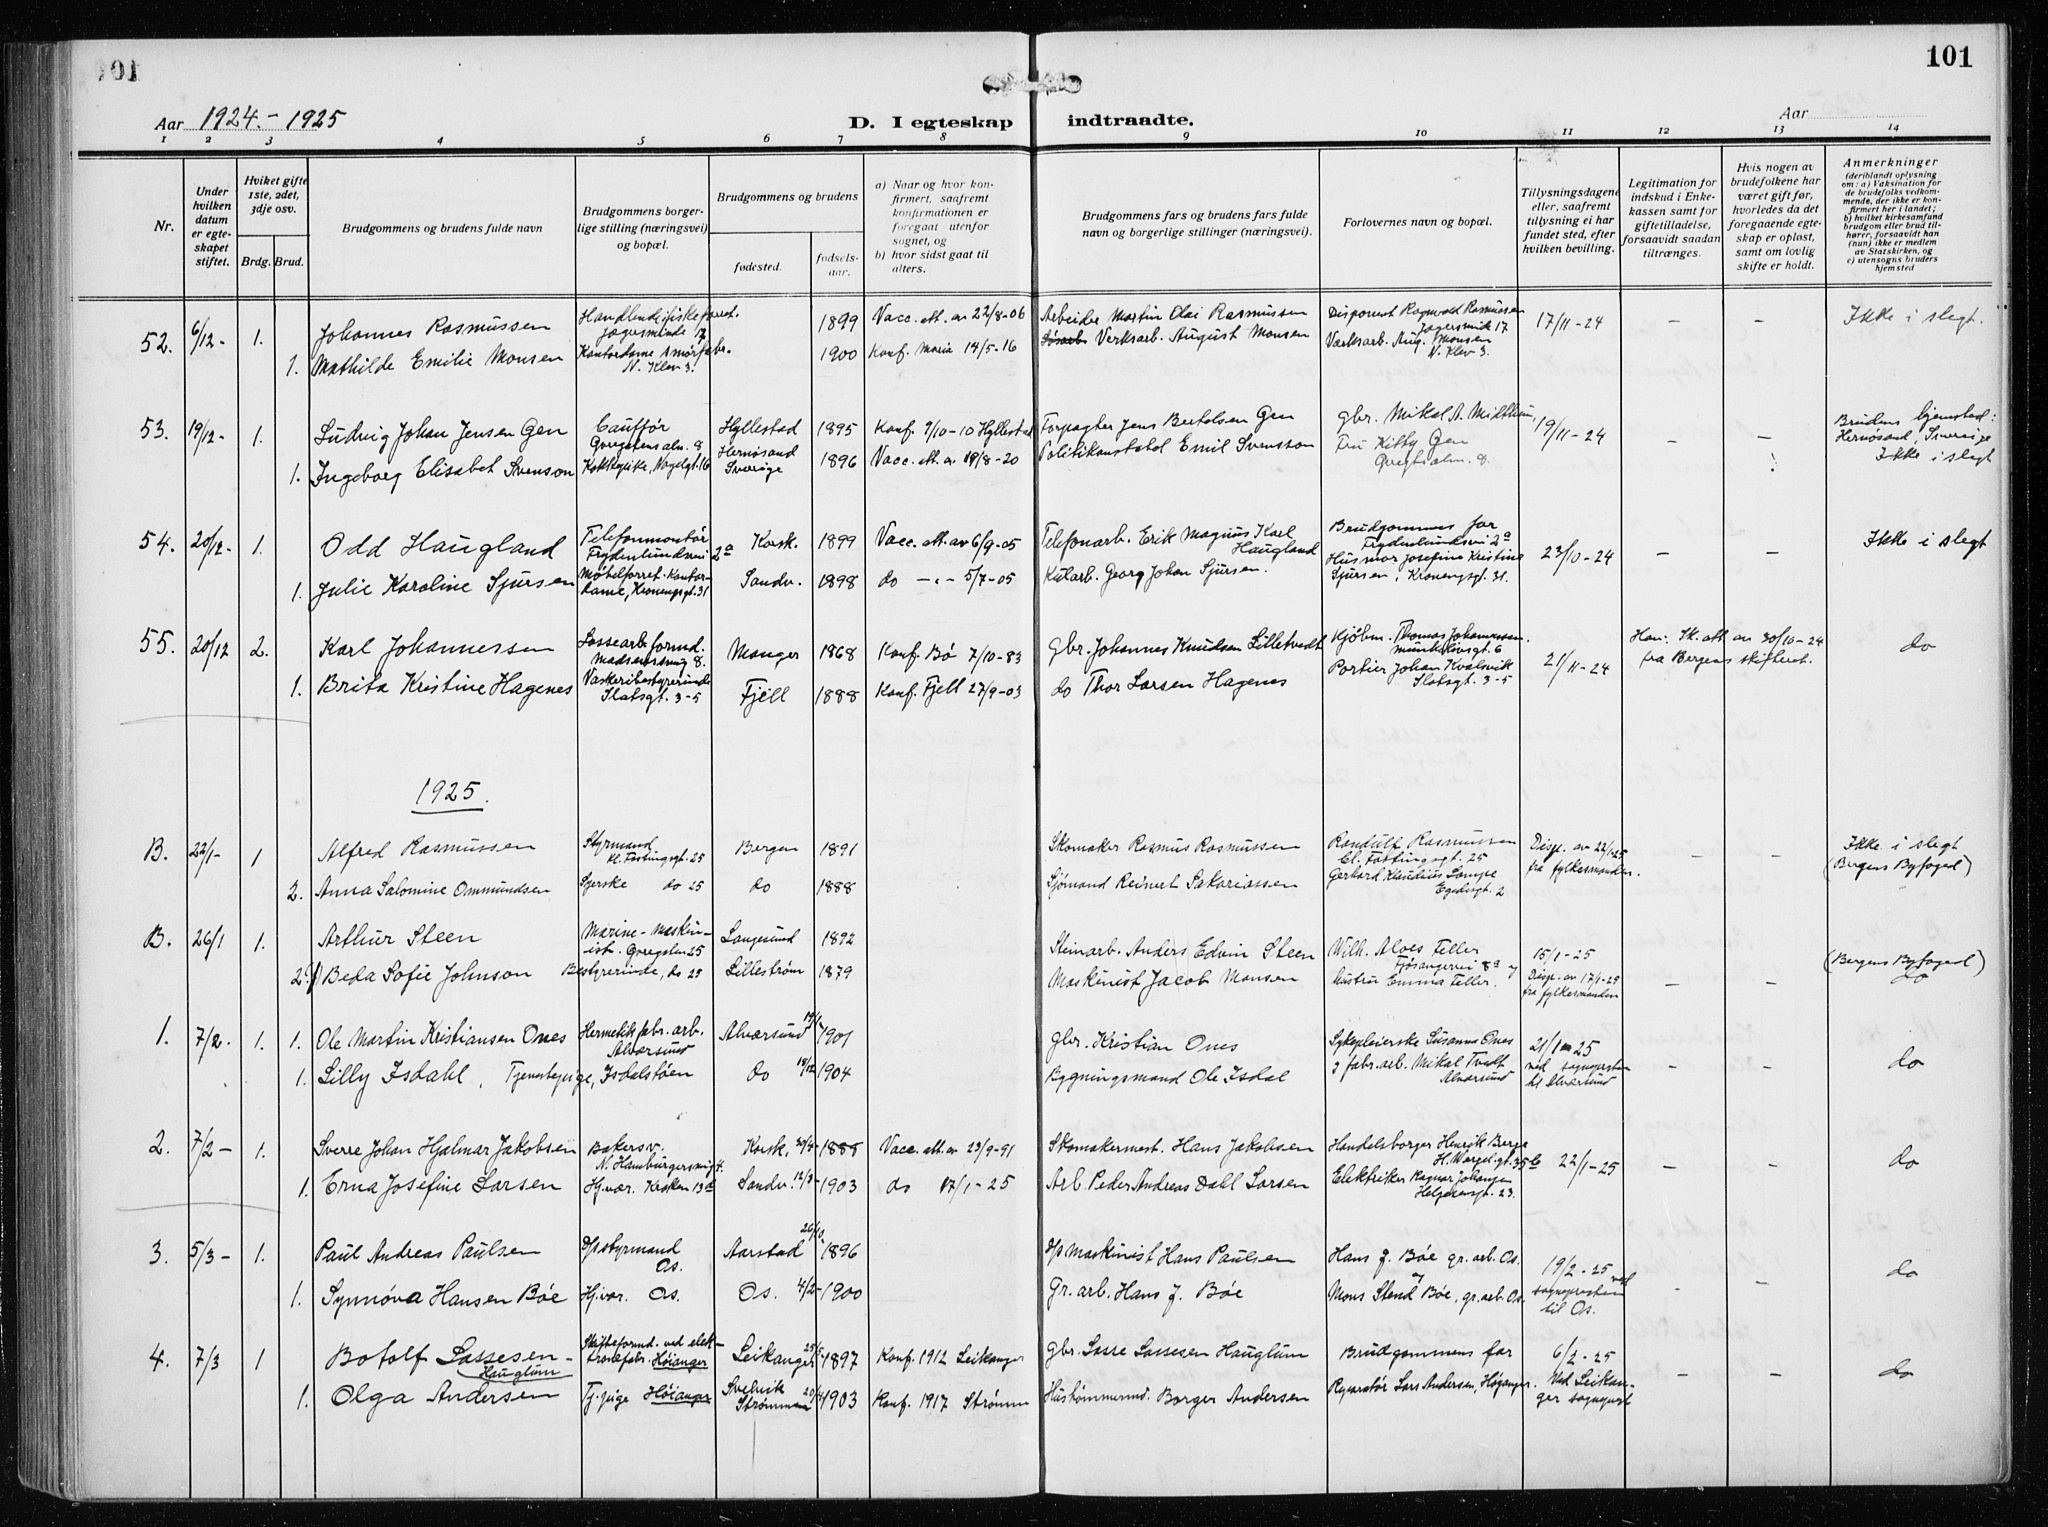 101
101
Aar 1924.-1925
D. I egteskap indtraadte.
Aar
1 2 3 4 5 6 7 8 9 10 11 12 13 14
Nr.
Under hvilken datum er egteskapet stiftet.
Hviket gifte 1ste, 2det, 3dje osv.
Brdg. Brud.
Brudgommens og brudens fulde navn
Brudgommens borgerlige stilling (næringsvei) og bopæl.
Brudgommens og brudens
fødested.
fødselsaar.
a) Naar og hvor konfirmert, saafremt konfirmationen er foregaat utenfor sognet, og
b) hvor sidst gaat til alters.
Brudgommens fars og brudens fars fulde navn og borgerlige stillinger (næringsvei).
Forlovernes navn og bopæl.
Tillysningsdagene eller, saafremt tillysning ei har fundet sted, efter hvilken bevilling.
Legitimation for indskud i Enkekassen samt for giftetilladelse, forsaavidt saadan tiltrænges.
Hvis nogen av brudefolkene har været gift før, hvorledes da det foregaaende egteskap er opløst, samt om lovlig skifte er holdt.
Anmerkninger (deriblandt oplysning om: a) Vaksination for de brudefolks vedkommende, der ikke er konfirmert her i landet; b) hvilket kirkesamfund brudgom eller brud tilhører, forsaavidt han (hun) ikke er medlem av Statskirken, og c) utensogns bruders hjemsted
52. 6/12- 1. Johannes Rasmussen 1899 Vacc. att. av 22/8-06 Arbeider Martin Olai Rasmussen Disponent Ragnvald Rasmussen 17/11-24 - - Ikke i slegt.
1. Mathilde Emilie Monsen Kontordame N. Klev 3. 1900 Konf. Maria 14/5-16 Verksarb. August Monsen Verksarb. Aug. Monsen N. Klev 3.
53. 19/12- 1. Ludvig Johan Jensen Gen Hyllestad 1895 Konf. 9/10-10 Hyllestad Forpagter Jens Bertelsen Gen gbr. Mikal A. 19/11-24 - - Brudens hjemstad: Hernøsand, Sverige Ikke i slegt
1. Ingeborg Elisabet Svenson Hernøsand Sverige 1896 Vacc. att. av 19/8-20 Emil Svensson Fru Kitty Gen
54. 20/12- 1. Odd Haugland Telefonmontør Frydenlundsvei 2a Korsk. 1899 Vacc. att. av 6/9-05 Telefonarb. Erik Magnus Karl Haugland Brudgommens far Frydenlundsvei 2a 23/10-24 - - Ikke i slegt
1. Julie Karoline Sjursen Møbelforret. Kontordame, Kroneng st. 31 Sandv. 1898 do -"- 5/7-05 Kularb. Georg Johan Sjursen. Husmor Josefine Kristine Sjursen, Kronengsgt. 31.
55. 20/12 2. Karl Johannessen Lossearb. formd. 8. Manger 1868 Konf. Bø 7/10-83 gbr. Johannes Knudsen Lilletvedt Kjøbm. Thomas Johannessen. 6 21/11-24 Han: Sk. att. av 30/10-24 fra Bergens skifteret. do
1. Brita Kristine Hagenes Vaskeribestyrerinde Slotsgt. 3-5 Fjell 1888 Konf. Fjell 27/9-03 do Thor Larsen Hagenes Portier Johan Kvalvik Slotsgt. 3-5
1925.
B. 22/1- 1 Alfred Rasmussen Styrmand Kl. Fastingsgt. 25 Bergen 1891 Skomaker Rasmus Rasmussen Randulf Rasmussen Cl. Fastingsgt. 25 Disp. av 22/1-25 fra fylkesmanden. - - Ikke i slegt (Bergens Byfoged)
2. Anna Salomine Ommundsen Syerske do 25 do 1888 Sjømand Reinert Sakariassen Gerhard Klaudius Lampe 2
B. 26/1 1. Arthur Steen Marine-Maskinist. 25 Langesund 1892 Steinarb. Anders Edvin Steen Wilh. Aloes Feller Fjøsangervei 8a og 15/1-25 (Bergens Byfoged) do
2. Beda Sofie Johnson Bestyrerinde, do 25 Lillestrøm 1879 Maskinist Jacob Monsen Hustru Emma Feller. Disp. av 17/1-25 fra fylkesmanden - -
1. 7/2- 1. 1. Ole Martin Kristiansen Ones Hermetikfabr. arb. Alværsund Alværsund 1901 gbr. Kristian Ones Sykepleierske Susanna Ones 21/1-25 ved sogneprsten til Alværsund - - do
1. Lilly Isdahl, Tjenestepige, Isdalstøen do 18/12 1904 Bygningsmand Ole Isdal fabr. arb. Mikal Tvedt Alværsund
2. 7/2- 1. Sverre Johan Hjalmar Jakobsen Bakersv. N. Hamburgersmug 4. Korsk. 30/4- 1885 Vacc. att. av 23/9-91 Skomakermest. Hans Jakobsen Handelsborger Henrik Berge H. Wergel.gt. 35b 22/1-25 - - do
1. Erna Josefine Larsen Hj.vær. Kroken 13 Sandv. 12/3- 1903 do 17/1-25 Arb. Peder Andreas Dahl Larsen Elektriker Ragnar Johansen Helgesensgt. 23.
3. 5/3- 1. Paul Andreas Paulsen D/p styrmand Os. Aarstad 26/10. 1896 D/p Maskinist Hans Paulsen Hans J. Bøe gr. arb. Os. og 19/2-25 ved sogneprsten til Os. - - do
1. Synnøva Hansen Bøe Hj.vær. Os. Os. 4/2- 1900 Gr. arb. Hans J. Bøe Mons Stend Bøe, gr. arb. Os.
4. 7/3 1 Botolf Lassesen-Hauglum Skifteformd. ved elektrodefabr. Høianger Leikanger 1897 Konf. 1912 Leikanger gbr. Lasse Lassesen Hauglum Brudgommens far 6/2-25 Ved Leikanger sogneprst - - do
1. Olga Andersen Tj.pige Høianger Svelvik Strømmen 1903 Konf. 1917 Strømm Borger Andersen Reparatør Lars Andersen, Høianger.